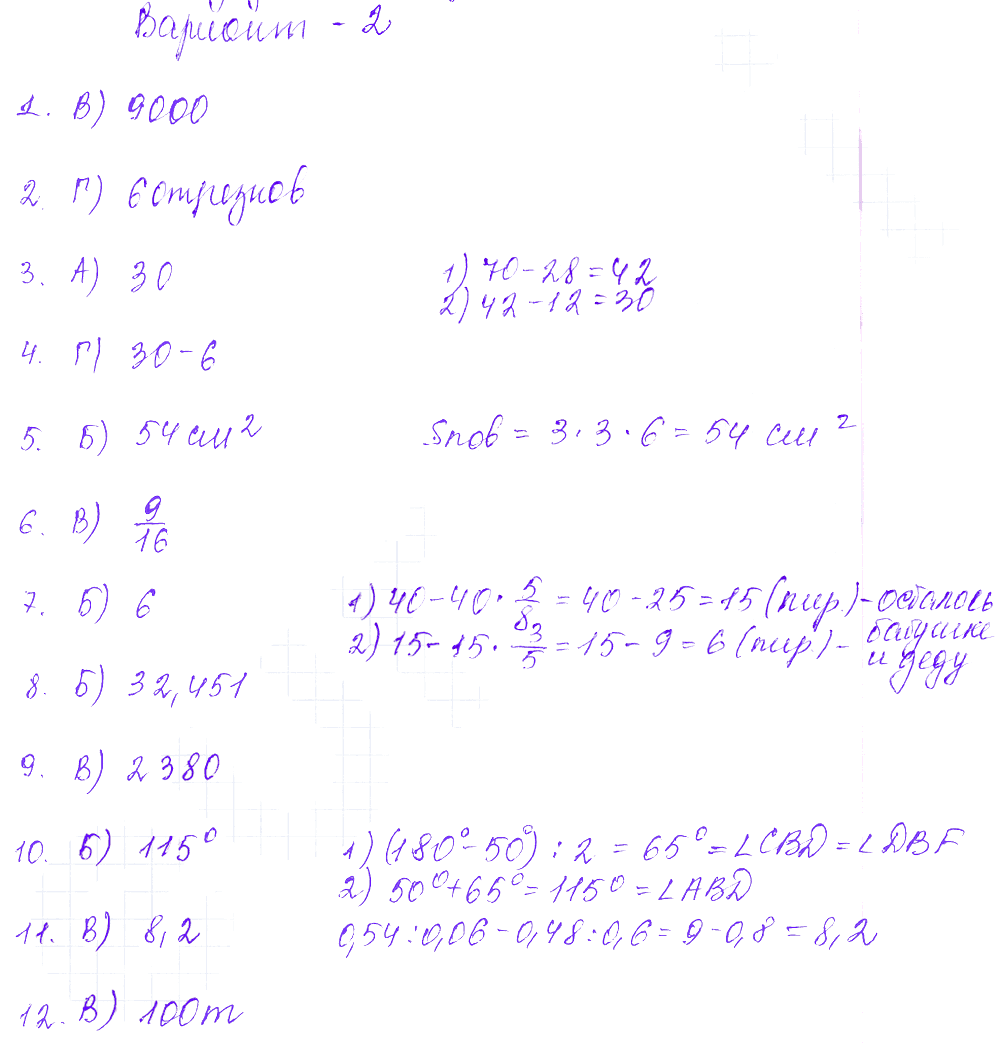 Вариант - 2
1. В) 9000
2. Г) 6 отрезков
3. А) 30 1) 70 - 28 = 42
2) 42 - 12 = 30
4. Г) 30 - 6
5. Б) 54 см² Sпов = 3 · 3 · 6 = 54 см²
6. В) 9/16
7. Б) 6 1) 40 - 40 · 5/8 = 40 - 25 = 15 (пир.) - осталось
2) 15 - 15 · 3/5 = 15 - 9 = 6 (пир.) - бабушке
и деду
8. Б) 32,451
9. В) 2380
10. Б) 115° 1) (180° - 50°) : 2 = 65° = ∠CBD = ∠DBF
2) 50° + 65° = 115° = ∠ABD
11. В) 8,2 0,54 : 0,06 - 0,48 : 0,6 = 9 - 0,8 = 8,2
12. В) 100т